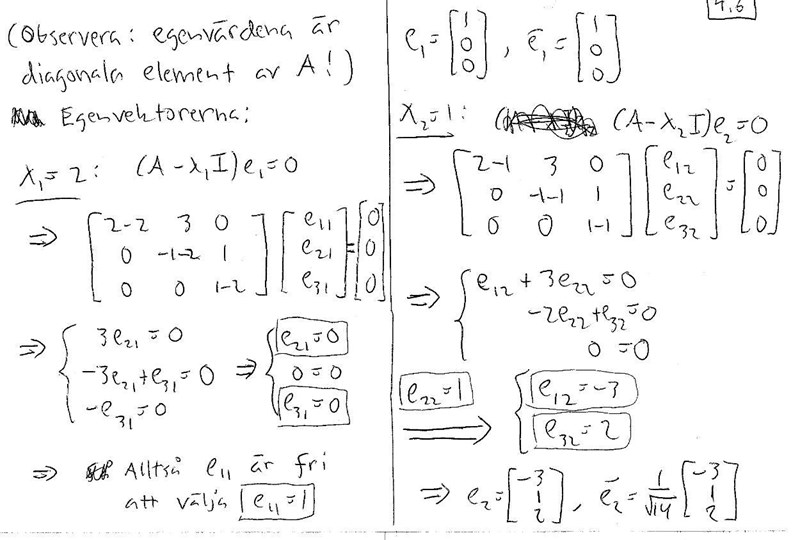 (Observera: egenvärdena är
diagonala element av A!)
Egenvektorerna:
λ₁=2: (A-λ₁I)e₁=0
⇒ [2-2 3 0; 0 -1-2 1; 0 0 1-2] [e₁₁; e₂₁; e₃₁] = [0; 0; 0]
⇒ { 3e₂₁=0 ⇒ { e₂₁=0
-3e₂₁+e₃₁=0 0=0
-e₃₁=0 e₃₁=0
⇒ Alltså e₁₁ är fri
att välja e₁₁=1
4,6
e₁=[1; 0; 0], ē₁=[1; 0; 0]
λ₂=1: (A-λ₂I)e₂=0
⇒ [2-1 3 0; 0 -1-1 1; 0 0 1-1] [e₁₂; e₂₂; e₃₂] = [0; 0; 0]
⇒ { e₁₂+3e₂₂=0
-2e₂₂+e₃₂=0
0=0
e₂₂=1 ⇒ { e₁₂=-3
e₃₂=2
⇒ e₂=[-3; 1; 2], ē₂=1/√14 [-3; 1; 2]